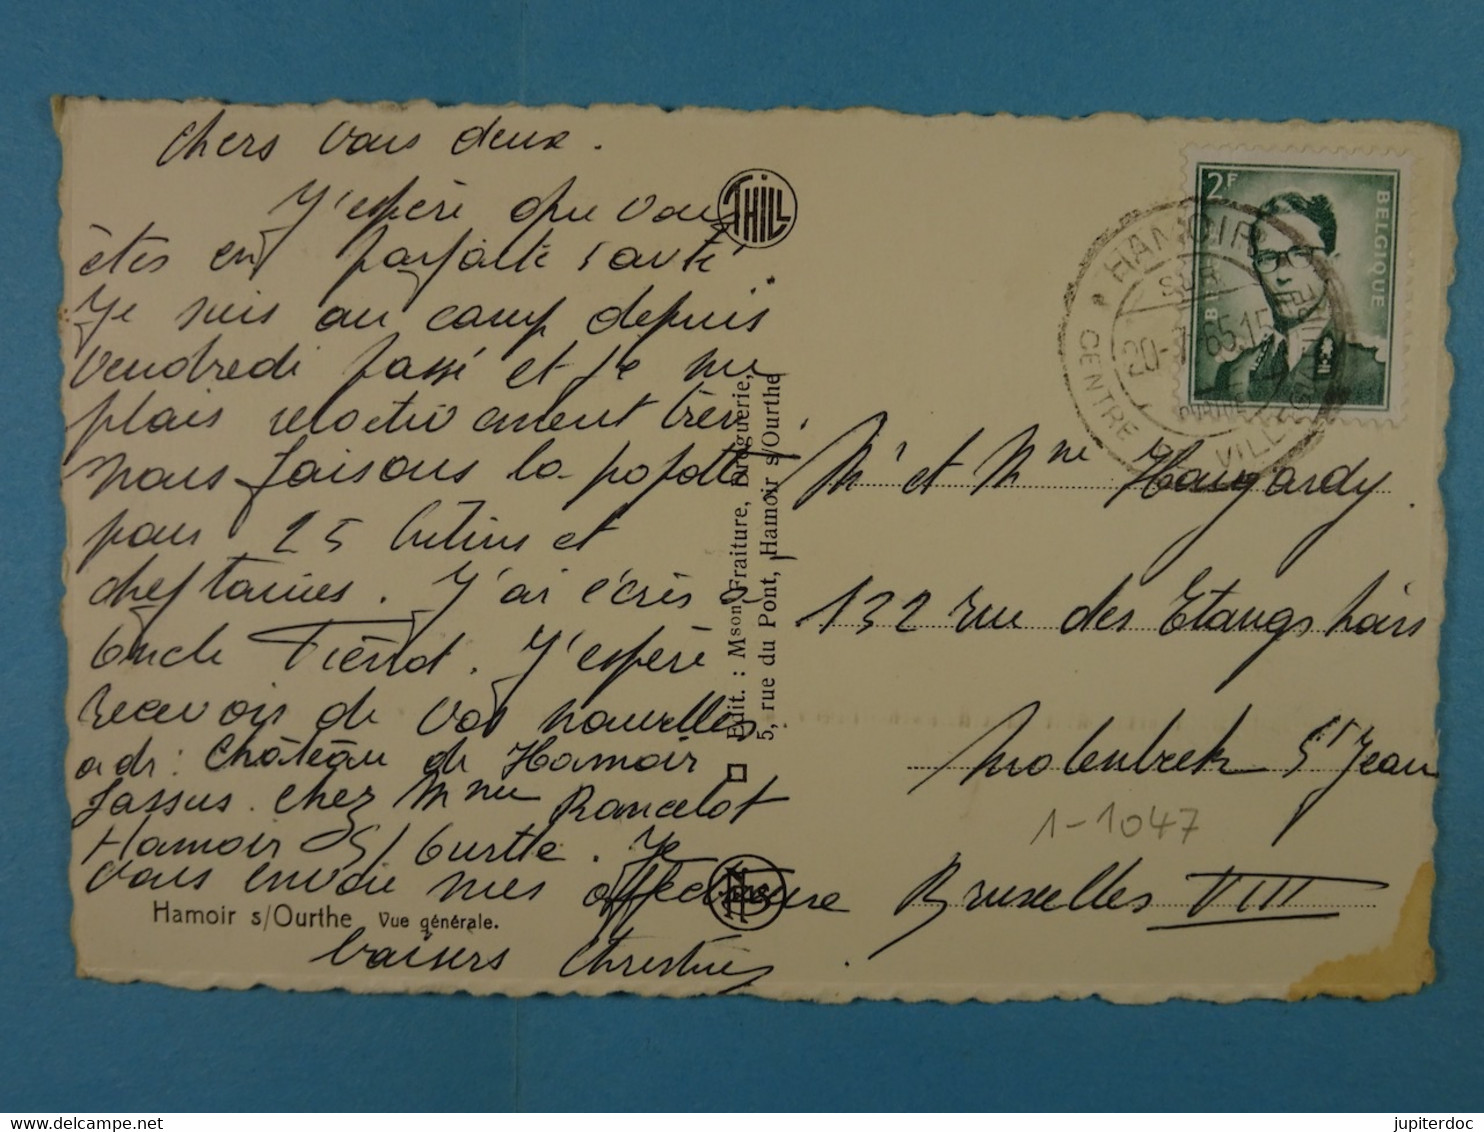 Chers vous deux.
J'espère que vous
êtes en parfaite santé.
Je suis au camp depuis
vendredi passé et je me
plais relativement très.
Nous faisons la popotte
pour 25 lutins et
cheftaines. J'ai écris à
Oncle
J'espère
recevoir de vos nouvelles
adr: Château de Hamoir
Lassus. chez Mme Rancelot
Hamoir S/Ourthe. Je
vous envoie mes affectueux
baisers Christine
Hamoir s/Ourthe Vue générale.
THILL
Edit. : Mson Fraiture, Droguerie,
5, rue du Pont, Hamoir s/Ourthe
THILL
2F
BELGIQUE
HAMOIR
SUR
OURTHE
20-7-65.15
CENTRE DE VILLEGIATURE
Mr et Mme Haugardy.
132 rue des Etangs Noirs
Molenbeek St Jean
1-1047
Bruxelles VIII
jupiterdoc